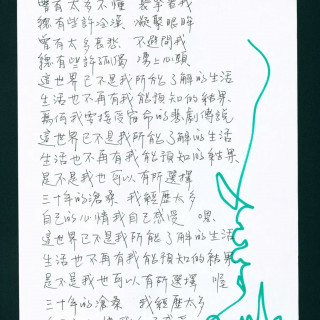 曾有太多不懂 襲擊著我
總有些許冷漠 凝聚眼眸
曾有太多哀愁 不過問我
總有些許孤獨 湧上心頭
這世界已不是我所能了解的生活
生活也不再有我能預知的結果、
為何我需接受宿命的悲劇傳說
這世界已不是我所能了解的生活
生活也不再有我能預知的結果、
是不是我也可以有所選擇
三十年的滄桑、我經歷太多
自己的心情我自己感受 嘿、
這世界已不是我所能了解的生活
生活也不再有我能預知的結果
是不是我也可以有所選擇 喔
三十年的滄桑 我經歷太多